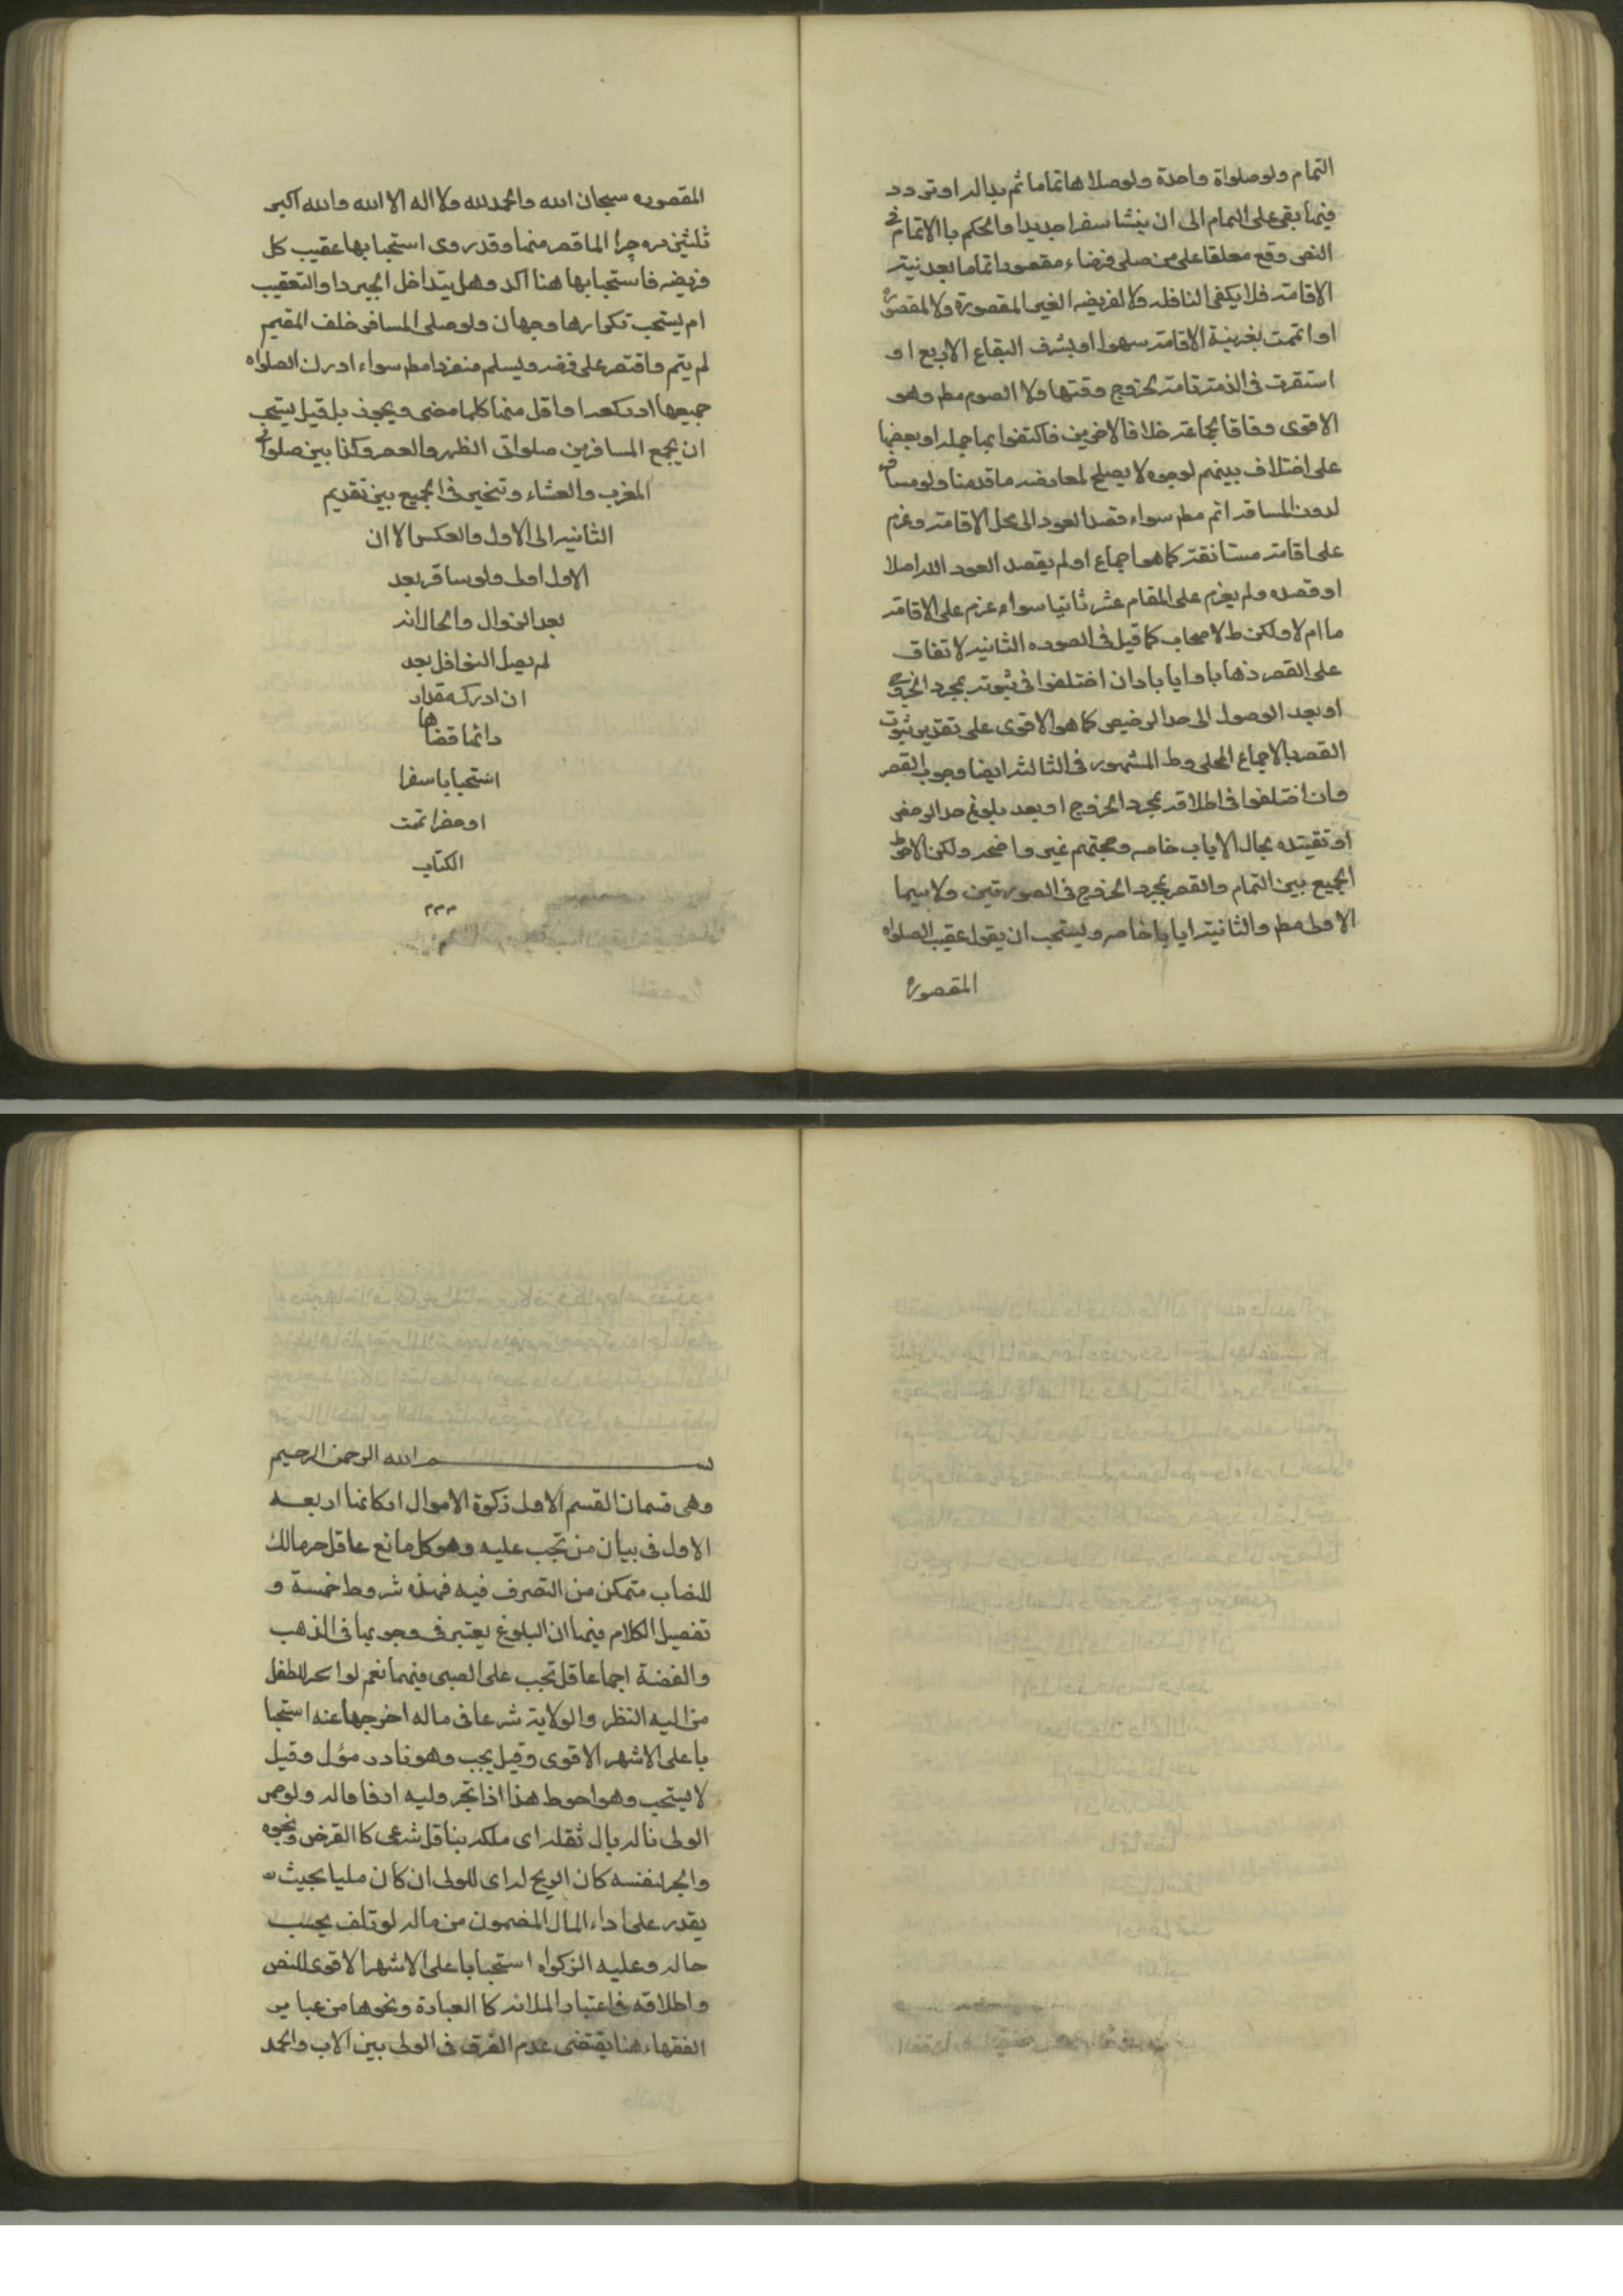 التمام ولو صلواة واحدة ولو صلاها تماما ثم بدا له او تردد
فيما بقى على التمام الى ان ينشا سفرا جديدا والحكم باالاتمام فى
النص وقع معلقا على من صلى فريضاء مقصورا تماما بعد نيته
الاقامته فلا يكفى النافله ولا الفريضه الغير المقصورة ولا المقصوره
او اتممت بغير نية الاقامته سهوا او بشرف البقاع الاربع او
استقرت فى الذمة تامته بخروج وقتها ولا الصوم مطم وهو
الاقوى وفاقا لجماعته خلافا لاخرين فاكتفوا بها جمله او بعضها
على اختلاف بينهم لوجوه لا يصلح لمعارضه ما قدمنا ولو مسا
لدون المسافه اتم مطم سواء قصد العود الى محل الاقامته وعزم
على اقامته مستانفة كما هو اجماع او لم يقصد العود اليه اصلا
او قصده ولم يعزم على المقام عشر ثانيا سواء عزم على الاقامته
ما ام لا ولكن ط لاصحاب كما قيل فى الصوره الثانيه لاتفاق
على القصر ذهابا وايابا وان اختلفوا فى ثبوته بمجرد الخروج
او بعد الوصول الى حد الرخيص كما هو الاقوى على تقدير ثبوت
القصر بالاجماع المحلى وط المشهور فى الثالثه ايضا وجوب القصر
وان اختلفوا فى اطلاقه بمجرد الخروج او بعد بلوغ حد الرخص
او تقييده بحال الاياب خاصه وحجتهم غير واضحه ولكن الاحوط
الجميع بين التمام والقصر بمجرد الخروج فى الصورتين ولا سيما
الاولى مطم والثانية ايابا خاصه ويستحب ان يقول عقيب الصلواه
المقصوره
المقصوره سبحان الله والحمد لله ولا اله الا الله والله اكبر
ثلثين مره جبرا لما قصر منها وقد روى استحبابها عقيب كل
فريضه فاستحبابها هنا اكد وهل يتداخل الجبر دا والتعقيب
ام يستحب تكرارها وجهان ولو صلى المسافر خلف المقيم
لم يتم واقتصر على فرضه ويسلم منفردا مطم سواء ادرك الصلواه
جميعها او ركعه او اقل منها كلما مضى ويجوز بل قيل يستحب
ان يجمع المسافر بين صلواتى الظهر والعصر وكذا بين صلواتى
المغرب والعشاء وتخير فى الجميع بين تقديم
الثانيه الى الاول والعكس الا ان
الاول اولى ولو سافر بعد
بعد الزوال والحال انه
لم يصل النوافل بعد
ان ادرك مقدار
دائها قضاها
استحبابا سفرا
او حضرا تمت
الكتاب
ممم
بسم الله الرحمن الرحيم
وهى قسمان القسم الاول زكوة الاموال اركانها اربعه
الاول فى بيان من تجب عليه وهو كل مانع عاقل حر مالك
للنصاب متمكن من التصرف فيه فهذه شروط خمسة و
تفصيل الكلام فيها ان البلوغ يعتبر فى وجوبها فى الذهب
والفضة اجماعا قل تجب على الصبى فيهما نعم لو اتجر للطفل
من اليه النظر والولاية شرعا فى ماله اخرجها عنه استحبا
با على الاشهر الاقوى وقيل يجب وهو نادر مؤل وقيل
لا يستحب وهو احوط هذا اذا تجر وليه ارفا ماله ولو
الولى ناله بال ثقله اى ملكه بناقل شرعى كا القرض ونحوه
واتجر لنفسه كان الربح له اى للولى ان كان مليا بحيث
يقدر على اداء المال المضمون من ماله لو تلف بحسب
حاله وعليه الزكواه استحبابا على الاشهر الاقوى للنص
واطلاقه فى اعتبار الملائه كا العبادة ونحوها من عباير
الفقهاء هنا يقتضى عدم الفرق فى الولى بين الاب والجد